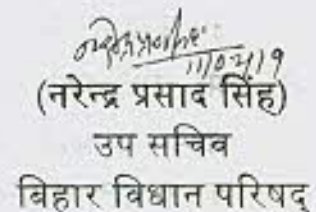 11/02/19
(नरेन्द्र प्रसाद सिंह)
उप सचिव
बिहार विधान परिषद्